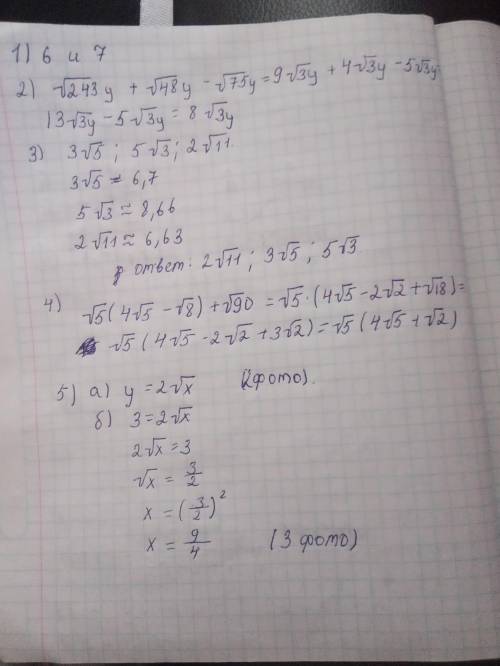 1) 6 и 7
2) √243y + √48y - √75y = 9√3y + 4√3y - 5√3y
13√3y - 5√3y = 8√3y
3) 3√5 ; 5√3 ; 2√11.
3√5 ≈ 6,7
5√3 ≈ 8,66
2√11 ≈ 6,63
ответ: 2√11 ; 3√5 ; 5√3
4) √5(4√5 - √8) + √90 = √5·(4√5 - 2√2 + √18) =
√5 (4√5 - 2√2 + 3√2) = √5 (4√5 + √2)
5) а) y = 2√x (2фото).
б) 3 = 2√x
2√x = 3
√x = 3/2
x = (3/2)²
x = 9/4 (3 фото)